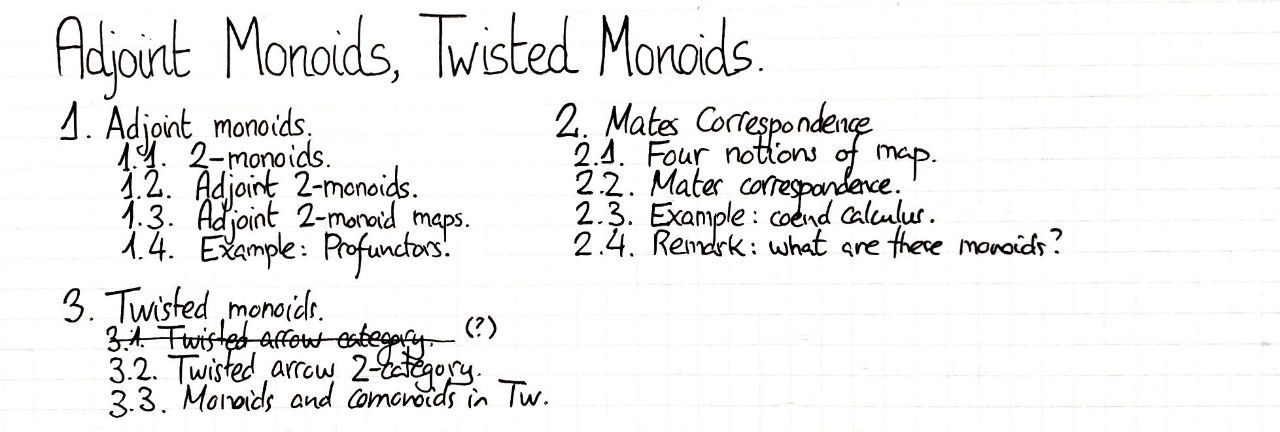 Adjoint Monoids, Twisted Monoids.
1. Adjoint monoids.
1.1. 2-monoids.
1.2. Adjoint 2-monoids.
1.3. Adjoint 2-monoid maps.
1.4. Example: Profunctors.
2. Mates Correspondence
2.1. Four notions of map.
2.2. Mates correspondence.
2.3. Example: coend calculus.
2.4. Remark: what are these monoids?
3. Twisted monoids.
3.1. Twisted arrow category. (?)
3.2. Twisted arrow 2-category.
3.3. Monoids and comonoids in Tw.